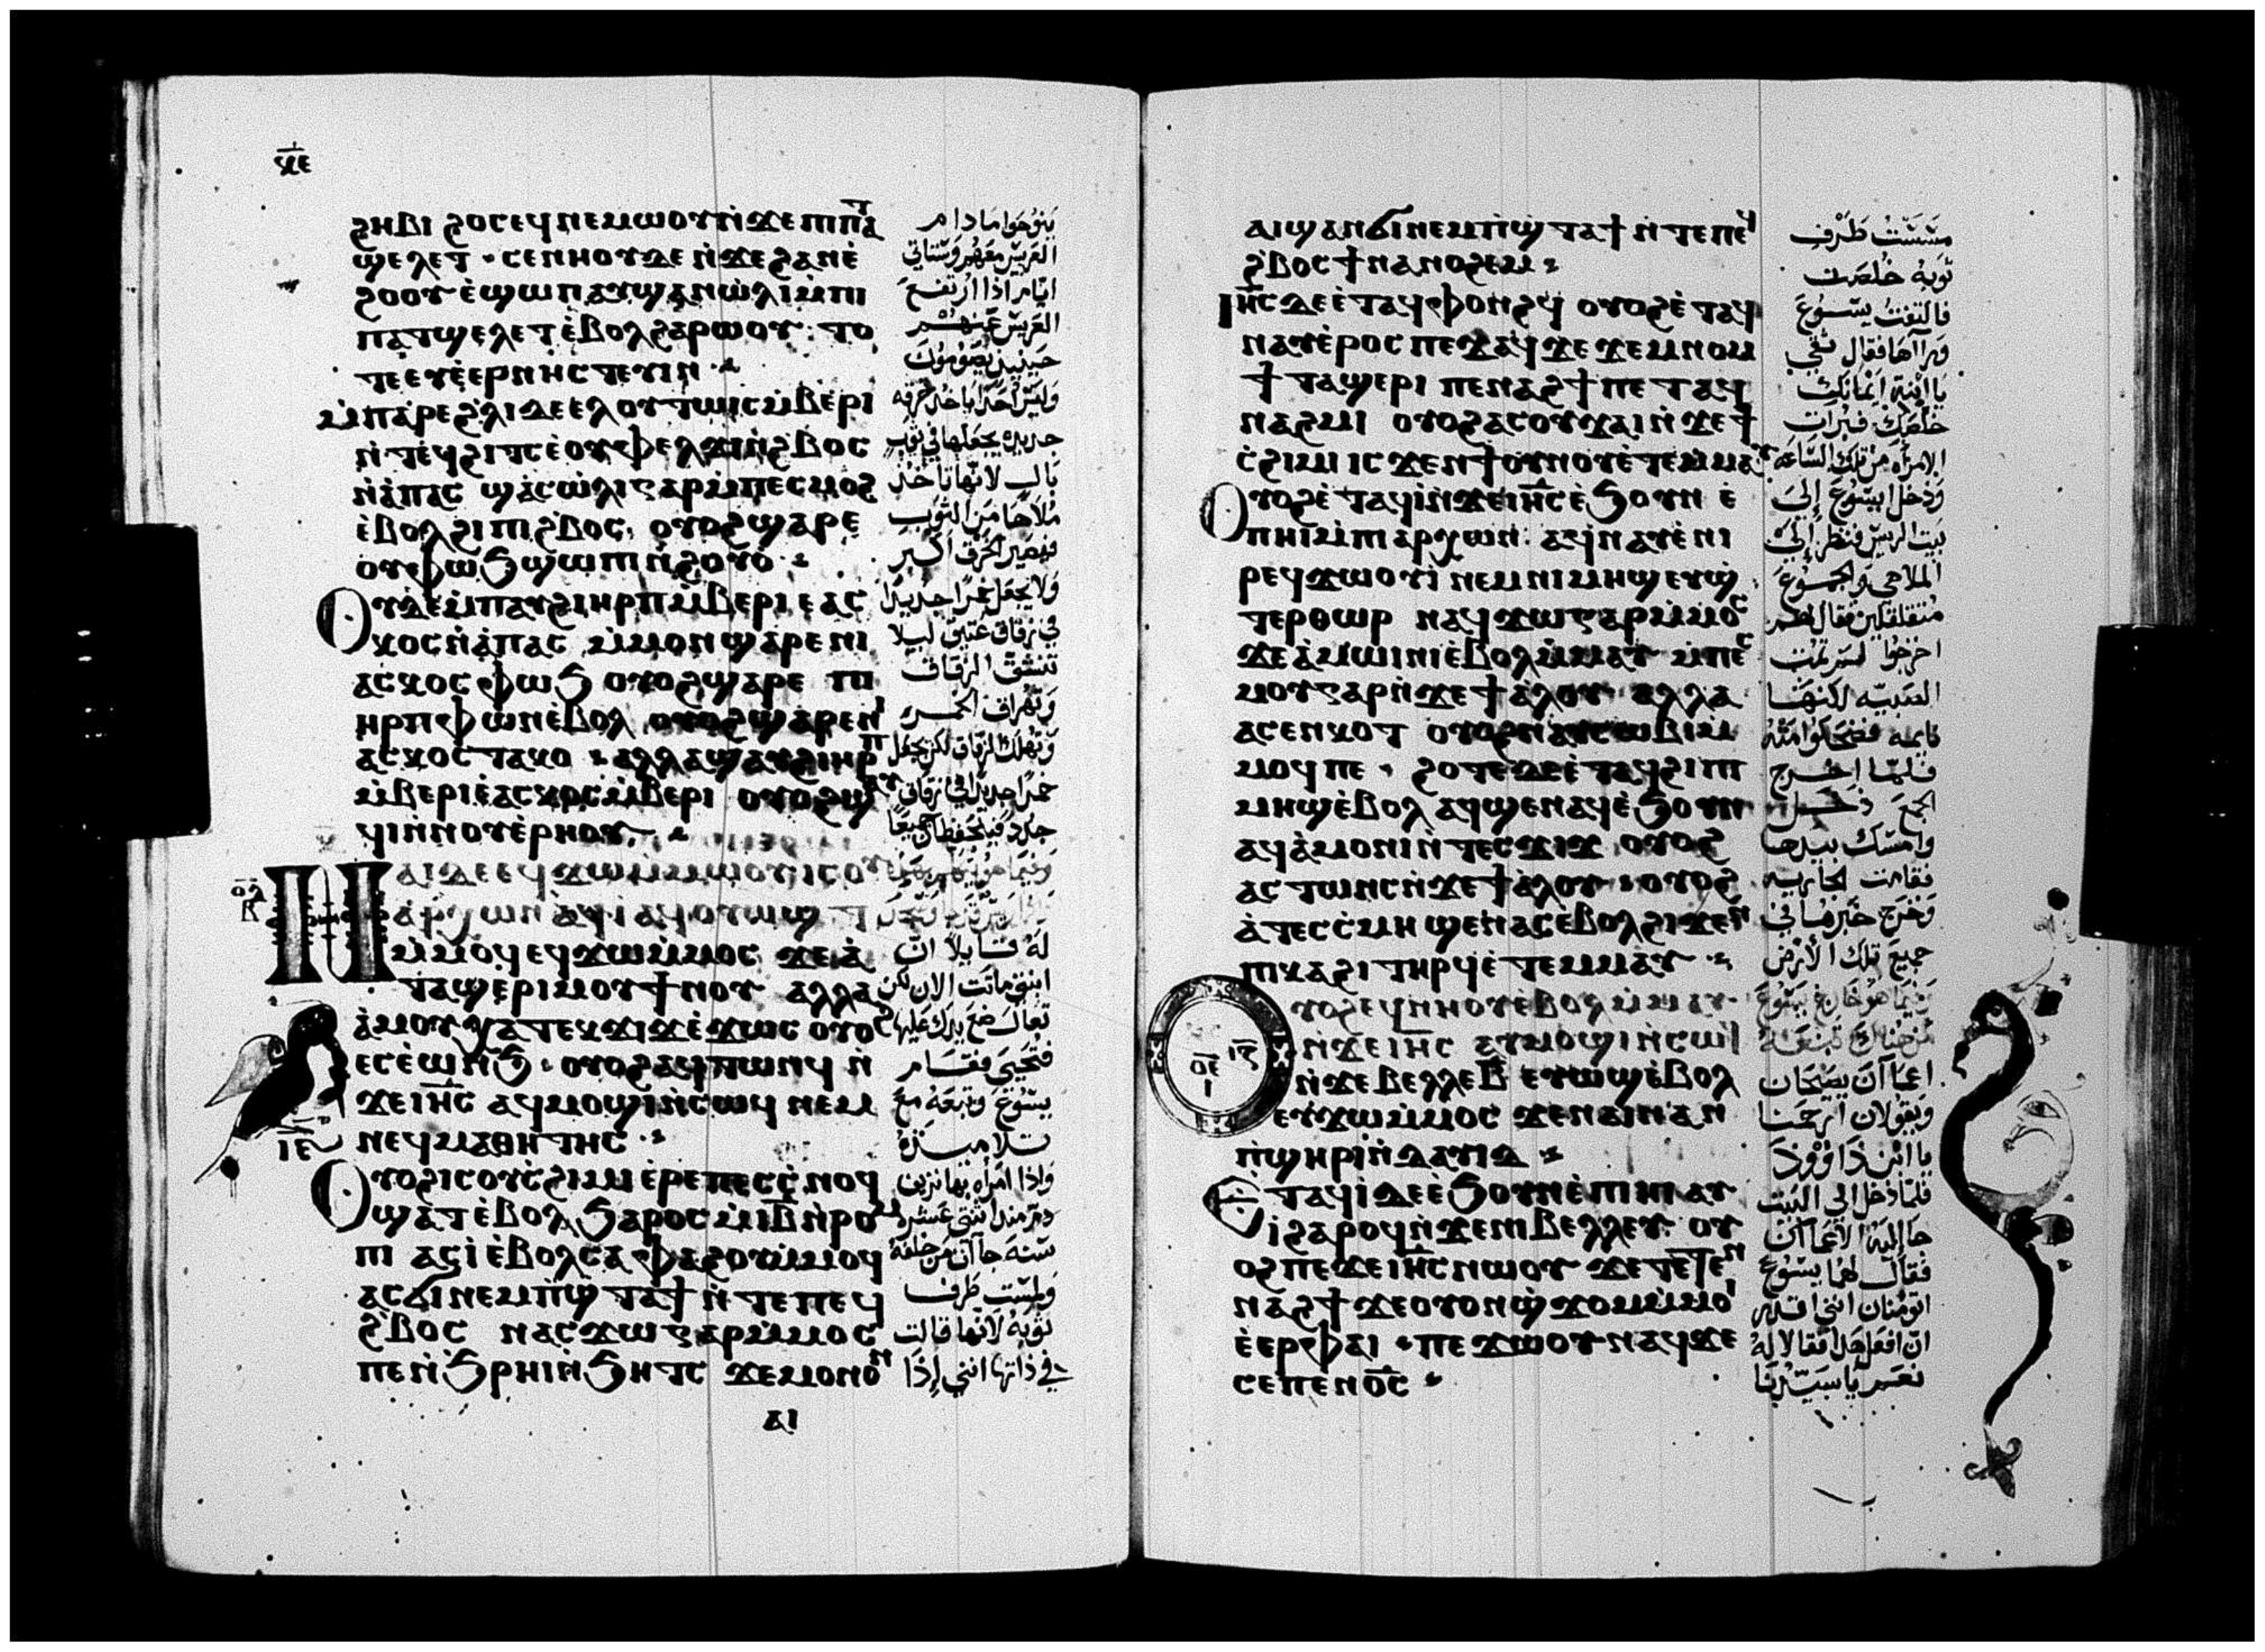 ϫⲉ
ϩⲏⲃⲓ ϩⲟⲥ ⲉϥⲛⲉⲙⲱⲟⲩ ⲛ̇ϫⲉ ⲡⲓⲡⲁⲧ
ϣⲉⲗⲉⲧ · ⲥⲉⲛⲏⲟⲩ ⲇⲉ ⲛ̇ϫⲉ ϩⲁⲛⲉ̇
ϩⲟⲟⲩ ⲉ̇ϣⲱⲡ ⲁⲩϣⲁⲛⲱ̇ⲗⲓ ⲙ̇ⲡⲓ
ⲡⲁⲧϣⲉⲗⲉⲧ ⲉ̇ⲃⲟⲗ ϩⲁⲣⲱⲟⲩ : ⲧⲟ
ⲧⲉ ⲉⲩⲉ̇ⲉⲣⲛⲏⲥⲧⲉⲩⲓⲛ ·
ⲙ̇ⲡⲁⲣⲉ ϩ̇ⲗⲓ ⲇⲉ ⲉ̇ⲗ ⲟⲩⲧⲱⲓⲥ ⲙ̇ⲃⲉⲣⲓ
ⲛ̇ⲧⲉϥϩⲓⲧⲥ ⲉ̇ⲟⲩⲫⲉⲗϫⲓ ⲛ̇ϩ̇ⲃⲟⲥ
ⲛ̇ⲁ̇ⲡⲁⲥ ϣⲁⲥⲱ̇ⲗⲓ ⲅⲁⲣ ⲙ̇ⲡⲉⲥⲙⲟϩ
ⲉ̇ⲃⲟⲗ ϩⲓ ⲡⲓϩ̇ⲃⲟⲥ, ⲟⲩⲟϩ ϣⲁⲣⲉ
ⲟⲩⲫⲱϧ ϣⲱⲡⲓ ⲛ̇ϩⲟⲩⲟ̇ ·
Ⲟⲩⲇⲉ ⲙ̇ⲡⲁⲩϩⲓ ⲏⲣⲡ ⲙ̇ⲃⲉⲣⲓ ⲉⲁⲥ
ⲭⲟⲥ ⲛ̇ⲁ̇ⲡⲁⲥ ⲙ̇ⲙⲟⲛ ϣⲁⲣⲉ ⲛⲓ
ⲁⲥⲭⲟⲥ ⲫⲱϧ ⲟⲩⲟϩ ϣⲁⲣⲉ ⲡⲓ
ⲏⲣⲡ ⲫⲱⲛ ⲉ̇ⲃⲟⲗ ⲟⲩⲟϩ ϣⲁⲣⲉ ⲛⲓ
ⲁⲥⲭⲟⲥ ⲧⲁⲕⲟ · ⲁⲗⲗⲁ ϣⲁⲩϩⲓ ⲏⲣⲡ
ⲙ̇ⲃⲉⲣⲓ ⲉ̇ⲁⲥⲭⲟⲥ ⲙ̇ⲃⲉⲣⲓ ⲟⲩⲟϩ ϣⲁⲩ
ϥⲓ ⲛ̇ⲛⲟⲩⲉ̇ⲣⲏⲟⲩ ·
ⲟ̅ⲇ̅ ⲕ̅
Ⲛⲁⲓ ⲇⲉ ⲉϥϫⲱ ⲙ̇ⲙⲱⲟⲩ ⲓⲥ ⲟⲩ
ⲁⲣⲭⲱⲛ ⲁϥⲓ̇ ⲁϥⲟⲩⲱϣⲧ
ⲙ̇ⲙⲟϥ ⲉϥϫⲱ ⲙ̇ⲙⲟⲥ ϫⲉ ⲁ̇
ⲧⲁϣⲉⲣⲓ ⲙⲟⲩ ϯⲛⲟⲩ ⲁⲗⲗⲁ
ⲁ̇ⲙⲟⲩ ⲭⲁ ⲧⲉⲕϫⲓϫ ⲉ̇ϫⲱⲥ ⲟⲩⲟϩ
ⲉⲥⲉ̇ⲱⲛϧ · ⲟⲩⲟϩ ⲁϥⲧⲱⲛϥ ⲛ̇
ϫⲉ ⲓⲏ̅ⲥ̅ ⲁϥⲙⲟϣⲓ ⲛ̇ⲥⲱϥ ⲛⲉⲙ
ⲓ̅ⲉ̅
ⲛⲉϥⲙⲁⲑⲏⲧⲏⲥ ·
Ⲟⲩⲟϩ ⲓⲥ ⲟⲩⲥ̇ϩⲓⲙⲓ ⲉ̇ⲣⲉ ⲡⲉⲥⲥ̇ⲛⲟϥ
ϣⲁⲧ ⲉ̇ⲃⲟⲗ ϧⲁⲣⲟⲥ ⲙ̇ⲓ̅ⲃ̅ ⲛ̇ⲣⲟⲙ
ⲡⲓ ⲁⲥⲓ̇ ⲉ̇ⲃⲟⲗ ⲥⲁ ⲫⲁϩⲟⲩ ⲙ̇ⲙⲟϥ
ⲁⲥϭⲓ ⲛⲉⲙ ⲡ̇ϣⲧⲁϯ ⲛ̇ⲧⲉ ⲡⲉϥ
ϩ̇ⲃⲟⲥ ⲛⲁⲥϫⲱ ⲅⲁⲣ ⲙ̇ⲙⲟⲥ
ⲡⲉ ⲛ̇ϧⲣⲏⲓ ⲛ̇ϧⲏⲧⲥ ϫⲉ ⲙⲟⲛⲟⲛ
ⲁⲓ
ينوحوا ما دام
العريس معهم وستاتي
ايام اذا ارتفع
العريس عنهم
حينيذ يصومون
وليس احد ياخذ خرقه
جديده يجعلها في ثوب
بال لانها تاخذ
ملاها من الثوب
فيصير الخرق اكبر
ولا يجعل خمرا جديدا
في زقاق عتيق ليلا
تنشق الزقاق
وتهراق الخمر
وتهلك الزقاق لكن يجعل
خمرا جديدا في زقاق
جدد فيتحفظان جميعا
له قايلا ان
ابنتي ماتت الان لكن
تعال ضع يدك عليها
فتحيى فقام
يسوع وتبعه مع
تلاميذه
واذا امراه بها نزيف
دم منذ اثنتى عشره
سنه جات من خلفه
ولمست طرف
ثوبه لانها قالت
في ذاتها انني اذا
ⲁⲓϣⲁⲛϭⲓ ⲛⲉⲙ ⲡ̇ϣⲧⲁϯ ⲛ̇ⲧⲉ ⲡⲉϥ
ϩ̇ⲃⲟⲥ ϯⲛⲁⲛⲟϩⲉⲙ ·
Ⲓⲏ̅ⲥ̅ ⲇⲉ ⲉ̇ⲧⲁϥⲫⲟⲛϩϥ ⲟⲩⲟϩ ⲉ̇ⲧⲁϥ
ⲛⲁⲩ ⲉ̇ⲣⲟⲥ ⲡⲉϫⲁϥ ϫⲉ ϫⲉⲙⲛⲟⲙ
ϯ ⲧⲁϣⲉⲣⲓ ⲡⲉⲛⲁϩϯ ⲡⲉⲧⲁϥ
ⲛⲁϩⲙⲓ ⲟⲩⲟϩ ⲁⲥⲟⲩϫⲁⲓ ⲛ̇ϫⲉ ϯ
ⲥ̇ϩⲓⲙⲓ ⲓⲥϫⲉⲛ ϯⲟⲩⲛⲟⲩ ⲉ̇ⲧⲉⲙⲙⲁⲩ
Ⲟⲩⲟϩ ⲉ̇ⲧⲁϥⲓ̇ ⲛ̇ϫⲉ ⲓⲏ̅ⲥ̅ ⲉ̇ϧⲟⲩⲛ ⲉ̇
ⲡⲏⲓ ⲙ̇ⲡⲓⲁⲣⲭⲱⲛ : ⲁϥⲛⲁⲩ ⲉ̇ⲛⲓ
ⲣⲉϥϫⲱ ⲟⲩⲓ̇ ⲛⲉⲙ ⲛⲓⲙⲏϣ ⲉⲩϣ̇
ⲧⲉⲣⲑⲱⲣ ⲛⲁϥϫⲱ ⲅⲁⲣ ⲙ̇ⲙⲟⲥ
ϫⲉ ⲁ̇ⲙⲱⲓⲛⲓ ⲉ̇ⲃⲟⲗ ⲙ̇ⲙⲁⲩ ⲙ̇ⲡⲉⲥ
ⲙⲟⲩ ⲅⲁⲣ ⲛ̇ϫⲉ ϯⲁ̇ⲗⲟⲩ ⲁⲗⲗⲁ
ⲁⲥⲉⲛⲕⲟⲧ ⲟⲩⲟϩ ⲛⲁⲩⲥⲱⲃⲓ ⲙ̇
ⲙⲟϥ ⲡⲉ · ϩⲟⲧⲉ ⲇⲉ ⲉ̇ⲧⲁϥϩⲓ ⲡⲓ
ⲙⲏϣ ⲉ̇ⲃⲟⲗ ⲁϥϣⲉⲛⲁϥ ⲉ̇ϧⲟⲩⲛ
ⲁϥⲁ̇ⲙⲟⲛⲓ ⲛ̇ⲧⲉⲥϫⲓϫ ⲟⲩⲟϩ
ⲁⲥⲧⲱⲛⲥ ⲛ̇ϫⲉ ϯⲁ̇ⲗⲟⲩ · ⲟⲩⲟϩ
ⲁ̇ ⲧⲉⲥⲥ̇ⲙⲏ ϣⲉⲛⲁⲥ ⲉⲃⲟⲗ ϩⲓϫⲉⲛ
ⲡⲓⲕⲁϩⲓ ⲧⲏⲣϥ ⲉ̇ⲧⲉⲙⲙⲁⲩ ·
ⲟ̅ⲉ̅ ⲓ ⲓ̅ⲋ̅
Ⲟⲩⲟϩ ⲉϥⲛⲏⲟⲩ ⲉ̇ⲃⲟⲗ ⲙ̇ⲙⲁⲩ ·
ⲛ̇ϫⲉ ⲓⲏ̅ⲥ̅ ⲁⲩⲙⲟϣⲓ ⲛ̇ⲥⲱϥ
ⲛ̇ϫⲉ ⲃⲉⲗⲗⲉ ⲃ̅ ⲉⲩⲱϣ ⲉ̇ⲃⲟⲗ
ⲉⲩϫⲱ ⲙ̇ⲙⲟⲥ ϫⲉ ⲛⲁⲓ ⲛⲁⲛ
ⲡ̇ϣⲏⲣⲓ ⲛ̇ⲇⲁⲩⲓⲇ ·
Ⲉ̇ⲧⲁϥⲓ̇ ⲇⲉ ⲉ̇ϧⲟⲩⲛ ⲉ̇ⲡⲓⲏⲓ ⲁⲩ
ⲓ̇ ϩⲁⲣⲟϥ ⲛ̇ϫⲉ ⲡⲓⲃⲉⲗⲗⲉⲩ : ⲟⲩ
ⲟϩ ⲡⲉϫⲉ ⲓⲏ̅ⲥ̅ ⲛⲱⲟⲩ ϫⲉ ⲧⲉⲧⲉⲛ
ⲛⲁϩϯ ϫⲉ ⲟⲩⲟⲛϣ̇ϫⲟⲙ ⲙ̇ⲙⲟⲓ
ⲉ̇ⲉⲣ ⲫⲁⲓ · ⲡⲉϫⲱⲟⲩ ⲛⲁϥ ϫⲉ
ⲥⲉ ⲡⲉⲛⲟ̅ⲥ̅ ·
مسست طرف
ثوبه خلصت
فالتفت يسوع
وراها فقال ثقي
يا ابنة ايمانك
خلصك فبرات
الامراه من تلك الساعه
ودخل ايسوع الى
بيت الريس فنظر الى
الملاهي والجموع
متقلقلين فقال لهم
اخرجوا لم تمت
الصبيه لكنها
نايمه فضحكوا منه
فلما اخرج
الجمع دخل
وامسك بيدها
فقامت الجاريه
وخرج خبرها في
جميع تلك الارض
وفيما هو خارج يسوع
من هناك تبعه
اعميان يصيحان
ويقولان ارحمنا
يا ابن داوود
فلما دخل الى البيت
جا اليه الاعميان
فقال لهما يسوع
اتومنان انني اقدر
ان افعل هذا فقالا له
نعم يا سيدنا